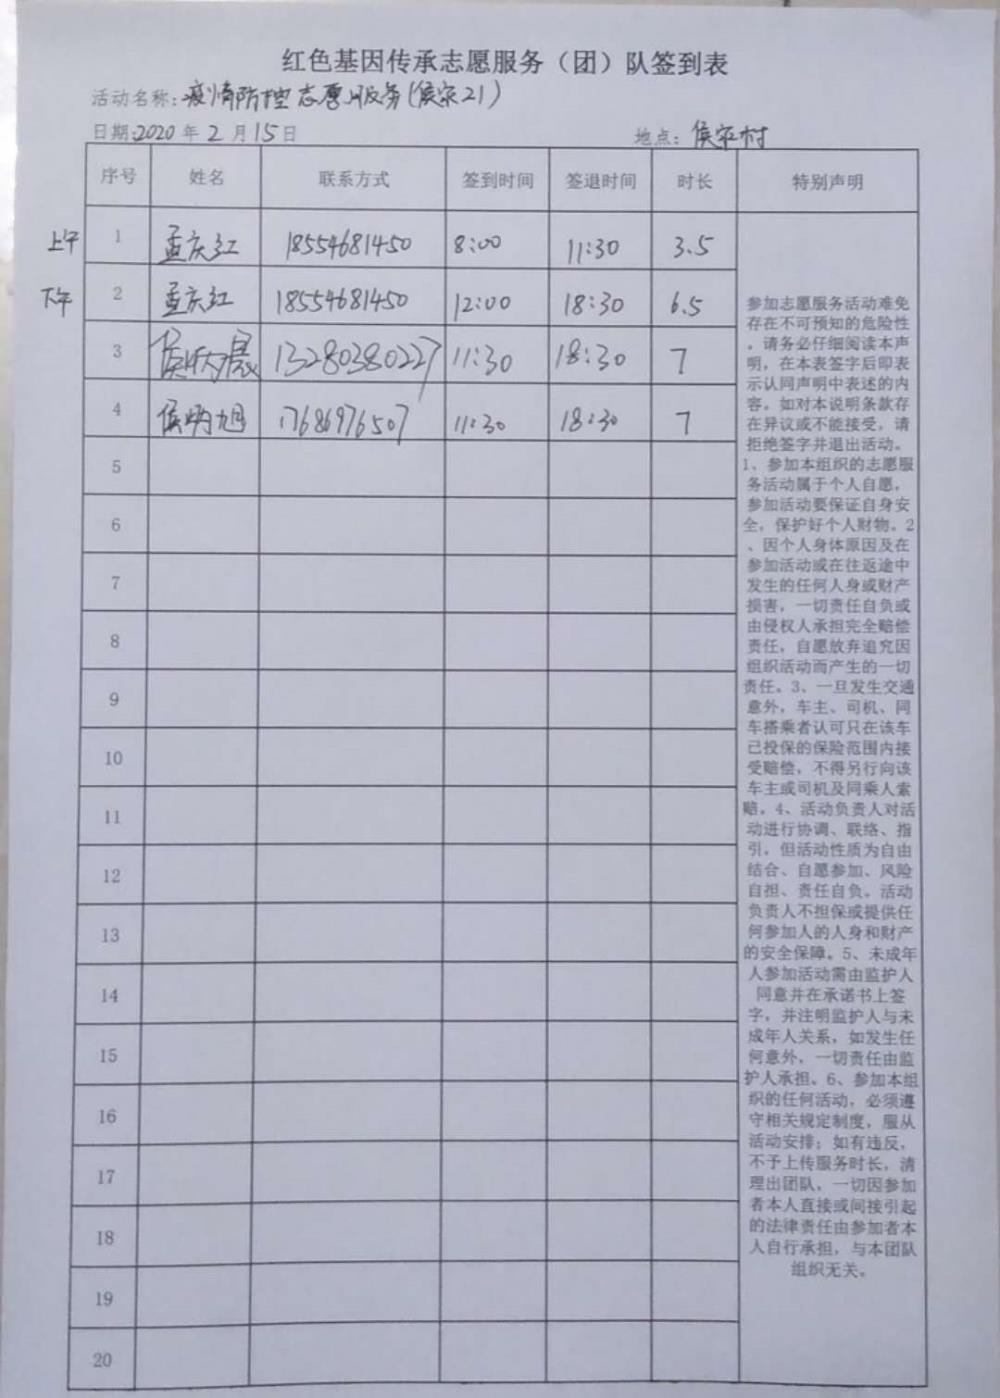 红色基因传承志愿服务（团）队签到表
活动名称：疫情防控志愿服务（侯家21）
日期：2020 年 2 月 15 日 地点：侯家村
序号 姓名 联系方式 签到时间 签退时间 时长 特别声明
上午 1 孟庆红 18554681450 8:00 11:30 3.5
下午 2 孟庆红 18554681450 12:00 18:30 6.5
3 侯炳晨 13280380227 11:30 18:30 7
4 侯炳旭 17686976507 11:30 18:30 7
5
6
7
8
9
10
11
12
13
14
15
16
17
18
19
20
参加志愿服务活动难免
存在不可预知的危险性
，请务必仔细阅读本声
明，在本表签字后即表
示认同声明中表述的内
容。如对本说明条款存
在异议或不能接受，请
拒绝签字并退出活动。
1、参加本组织的志愿服
务活动属于个人自愿，
参加活动要保证自身安
全，保护好个人财物。2
、因个人身体原因及在
参加活动或在往返途中
发生的任何人身或财产
损害，一切责任自负或
由侵权人承担完全赔偿
责任，自愿放弃追究因
组织活动而产生的一切
责任。3、一旦发生交通
意外，车主、司机、同
车搭乘者认可只在该车
已投保的保险范围内接
受赔偿，不得另行向该
车主或司机及同乘人索
赔。4、活动负责人对活
动进行协调、联络、指
引，但活动性质为自由
结合、自愿参加、风险
自担、责任自负。活动
负责人不担保或提供任
何参加人的人身和财产
的安全保障。5、未成年
人参加活动需由监护人
同意并在承诺书上签
字，并注明监护人与未
成年人关系，如发生任
何意外，一切责任由监
护人承担。6、参加本组
织的任何活动，必须遵
守相关规定制度，服从
活动安排；如有违反，
不予上传服务时长，清
理出团队，一切因参加
者本人直接或间接引起
的法律责任由参加者本
人自行承担，与本团队
组织无关。